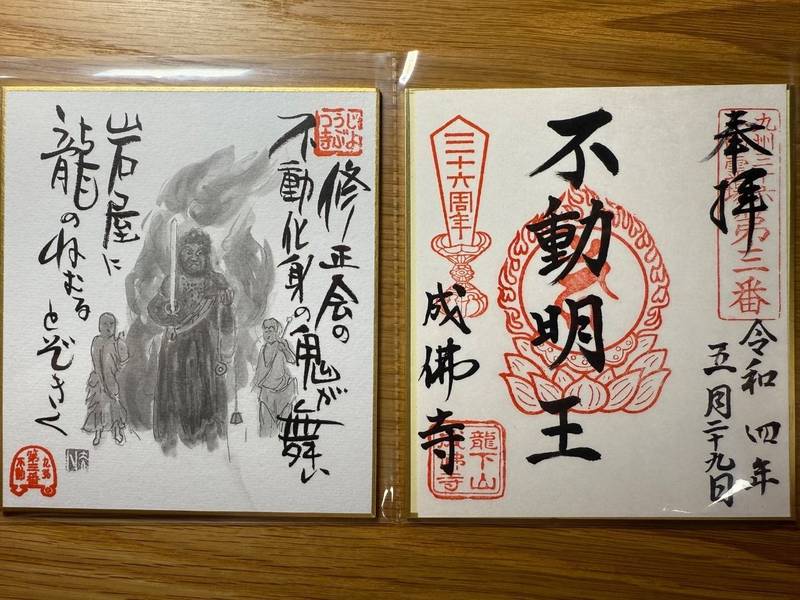 奉拝
第三番
令和四年
五月二十九日
不動明王
三十六周年
成佛寺
龍下山
成佛寺
じよ
うぶ
つ寺
修正会の
不動化身の鬼が舞い
岩屋に
龍のねむる
とぞきく
第三番
不動